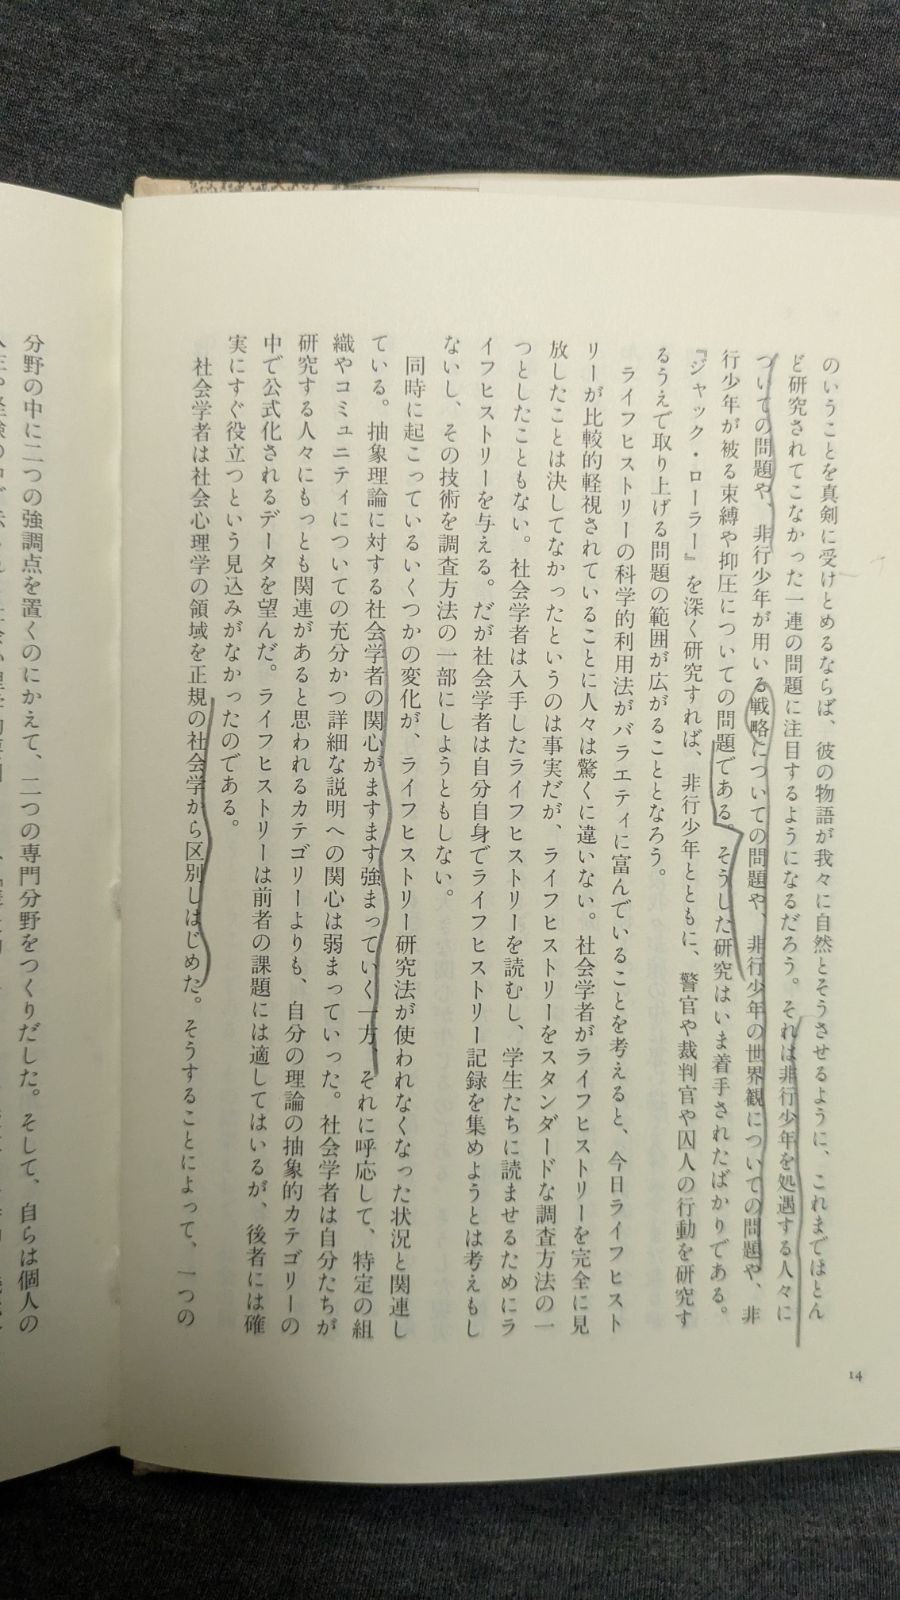 のいうことを真剣に受けとめるならば、彼の物語が我々に自然とそうさせるように、これまでほとん
ど研究されてこなかった一連の問題に注目するようになるだろう。それは非行少年を処遇する人々に
ついての問題や、非行少年が用いる戦略についての問題や、非行少年の世界観についての問題や、非
行少年が被る束縛や抑圧についての問題である。そうした研究はいま着手されたばかりである。
『ジャック・ローラー』を深く研究すれば、非行少年とともに、警官や裁判官や囚人の行動を研究す
るうえで取り上げる問題の範囲が広がることとなろう。
ライフヒストリーの科学的利用法がバラエティに富んでいることを考えると、今日ライフヒスト
リーが比較的軽視されていることに人々は驚くに違いない。社会学者がライフヒストリーを完全に見
放したことは決してなかったというのは事実だが、ライフヒストリーをスタンダードな調査方法の一
つとしたこともない。社会学者は入手したライフヒストリーを読むし、学生たちに読ませるためにラ
イフヒストリーを与える。だが社会学者は自分自身でライフヒストリー記録を集めようとは考えもし
ないし、その技術を調査方法の一部にしようともしない。
同時に起こっているいくつかの変化が、ライフヒストリー研究法が使われなくなった状況と関連し
ている。抽象理論に対する社会学者の関心がますます強まっていく一方、それに呼応して、特定の組
織やコミュニティについての充分かつ詳細な説明への関心は弱まっていった。社会学者は自分たちが
研究する人々にもっとも関連があると思われるカテゴリーよりも、自分の理論の抽象的カテゴリーの
中で公式化されるデータを望んだ。ライフヒストリーは前者の課題には適してはいるが、後者には確
実にすぐ役立つという見込みがなかったのである。
社会学者は社会心理学の領域を正規の社会学から区別しはじめた。そうすることによって、一つの
14
分野の中に二つの強調点を置くのにかえて、二つの専門分野をつくりだした。そして、自らは個人の